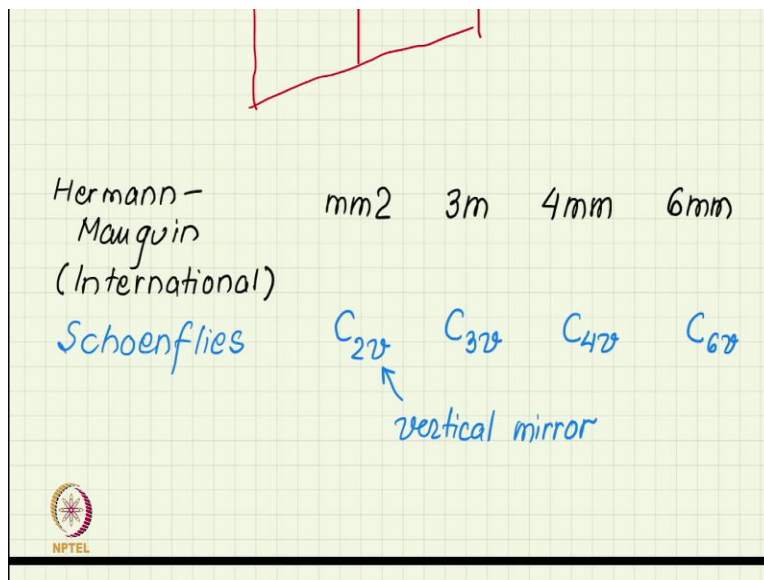 Hermann-
Mauguin
(International)
mm2 3m 4mm 6mm
Schoenflies C₂ᵥ C₃ᵥ C₄ᵥ C₆ᵥ
vertical mirror
NPTEL